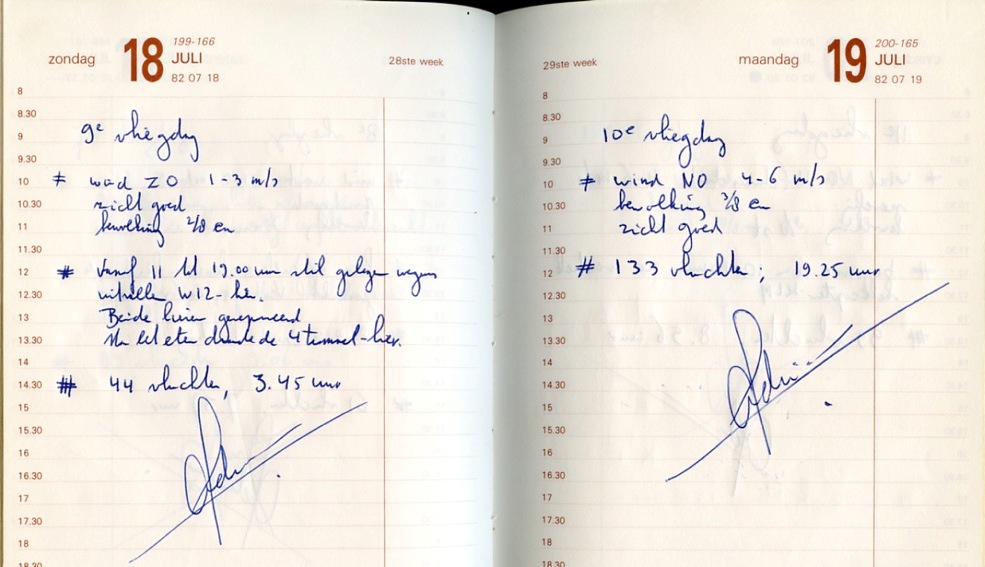 zondag 18 199-166 JULI 82 07 18 28ste week
8
8.30
9e vliegdag
9
9.30
10 # wind ZO 1-3 m/s
10.30 zicht goed
11 bewolking 2/8 en
11.30
12 # Vanaf 11 tot 19.00 uur stil gelegen wegens
12.30 W12-lier.
13 Beide lieren gerepareerd
13.30 Na het eten de 4 lier.
14
14.30 # 44 vluchten, 3.45 uur
15
15.30
16
16.30
17
17.30
18
18.30
29ste week maandag 19 200-165 JULI 82 07 19
8
8.30
9 10e vliegdag
9.30
10 # wind NO 4-6 m/s
10.30 bewolking 3/8 en
11 zicht goed
11.30
12 # 133 vluchten; 19.25 uur
12.30
13
13.30
14
14.30
15
15.30
16
16.30
17
17.30
18
18.30